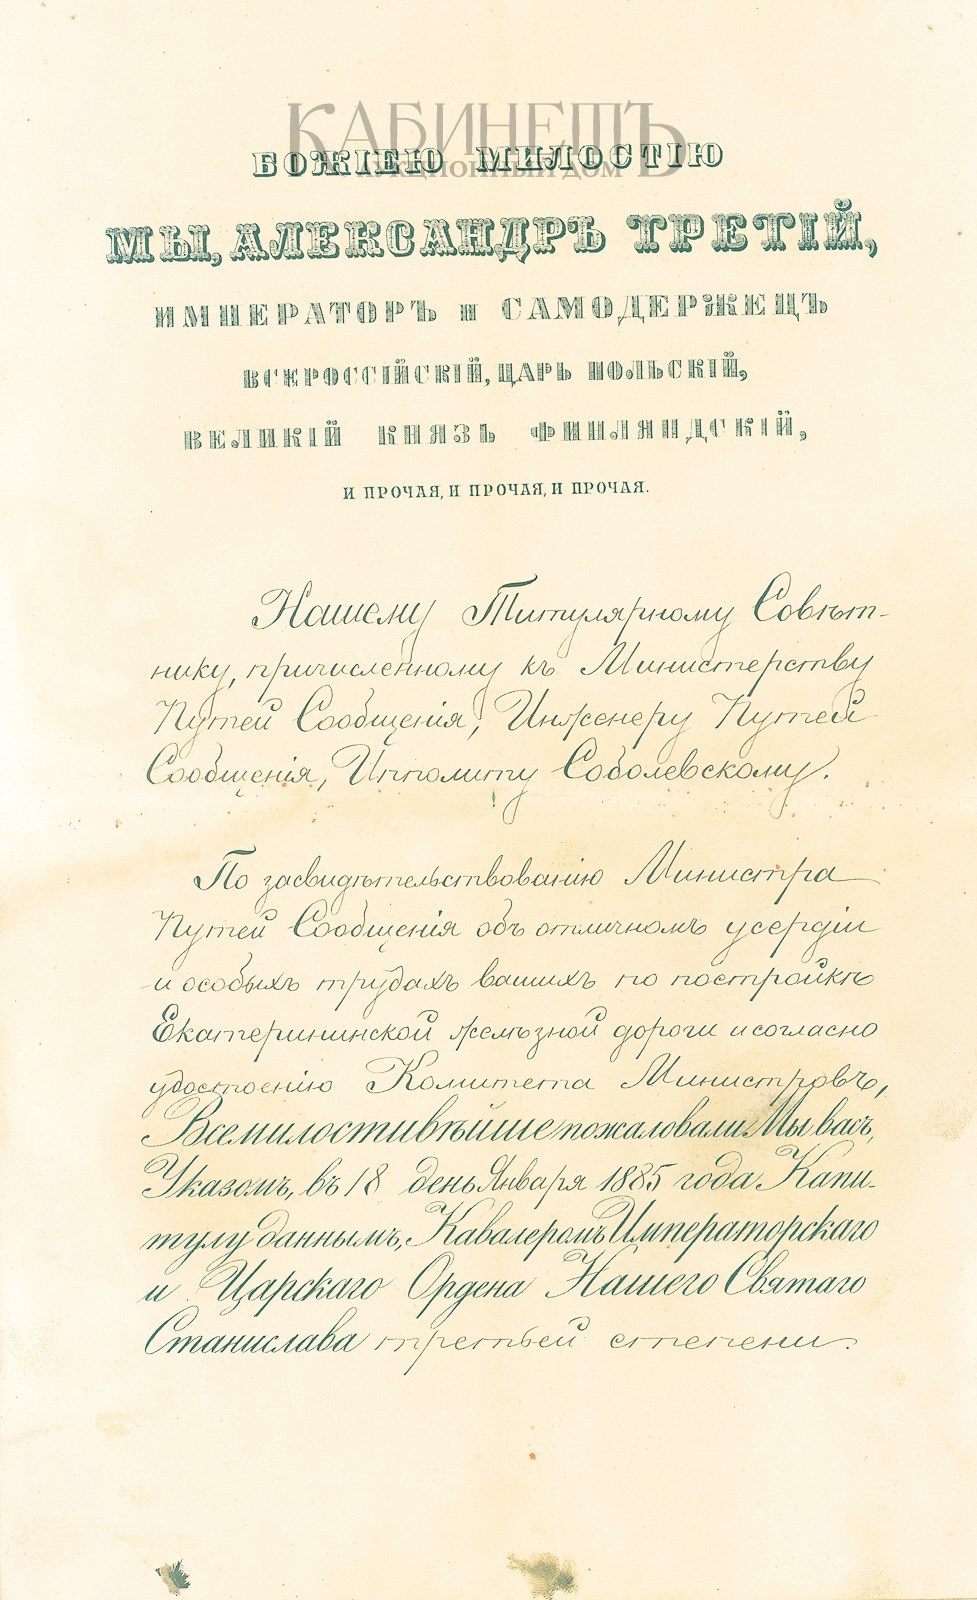 КАБИНЕТЪ
АУКЦИОННЫЙ ДОМ
БОЖІЕЮ МИЛОСТІЮ
МЫ, АЛЕКСАНДРЪ ТРЕТІЙ,
ИМПЕРАТОРЪ и САМОДЕРЖЕЦЪ
ВСЕРОССІЙСКІЙ, ЦАРЬ ПОЛЬСКІЙ,
ВЕЛИКІЙ КНЯЗЬ ФИНЛЯНДСКІЙ,
И ПРОЧАЯ, И ПРОЧАЯ, И ПРОЧАЯ.
Нашему Титулярному Совѣт-
нику, причисленному къ Министерству
Путей Сообщенія, Инженеру Путей
Сообщенія, Ипполиту Соболевскому.
По засвидѣтельствованію Министра
Путей Сообщенія объ отличномъ усердіи
и особыхъ трудахъ вашихъ по постройкѣ
Екатерининской желѣзной дороги и согласно
удостоенію Комитета Министровъ,
Всемилостивѣйше пожаловали Мы васъ,
Указомъ, въ 18 день Января 1885 года Капи-
тулу даннымъ, Кавалеромъ Императорскаго
и Царскаго Ордена Нашего Святаго
Станислава третьей степени.